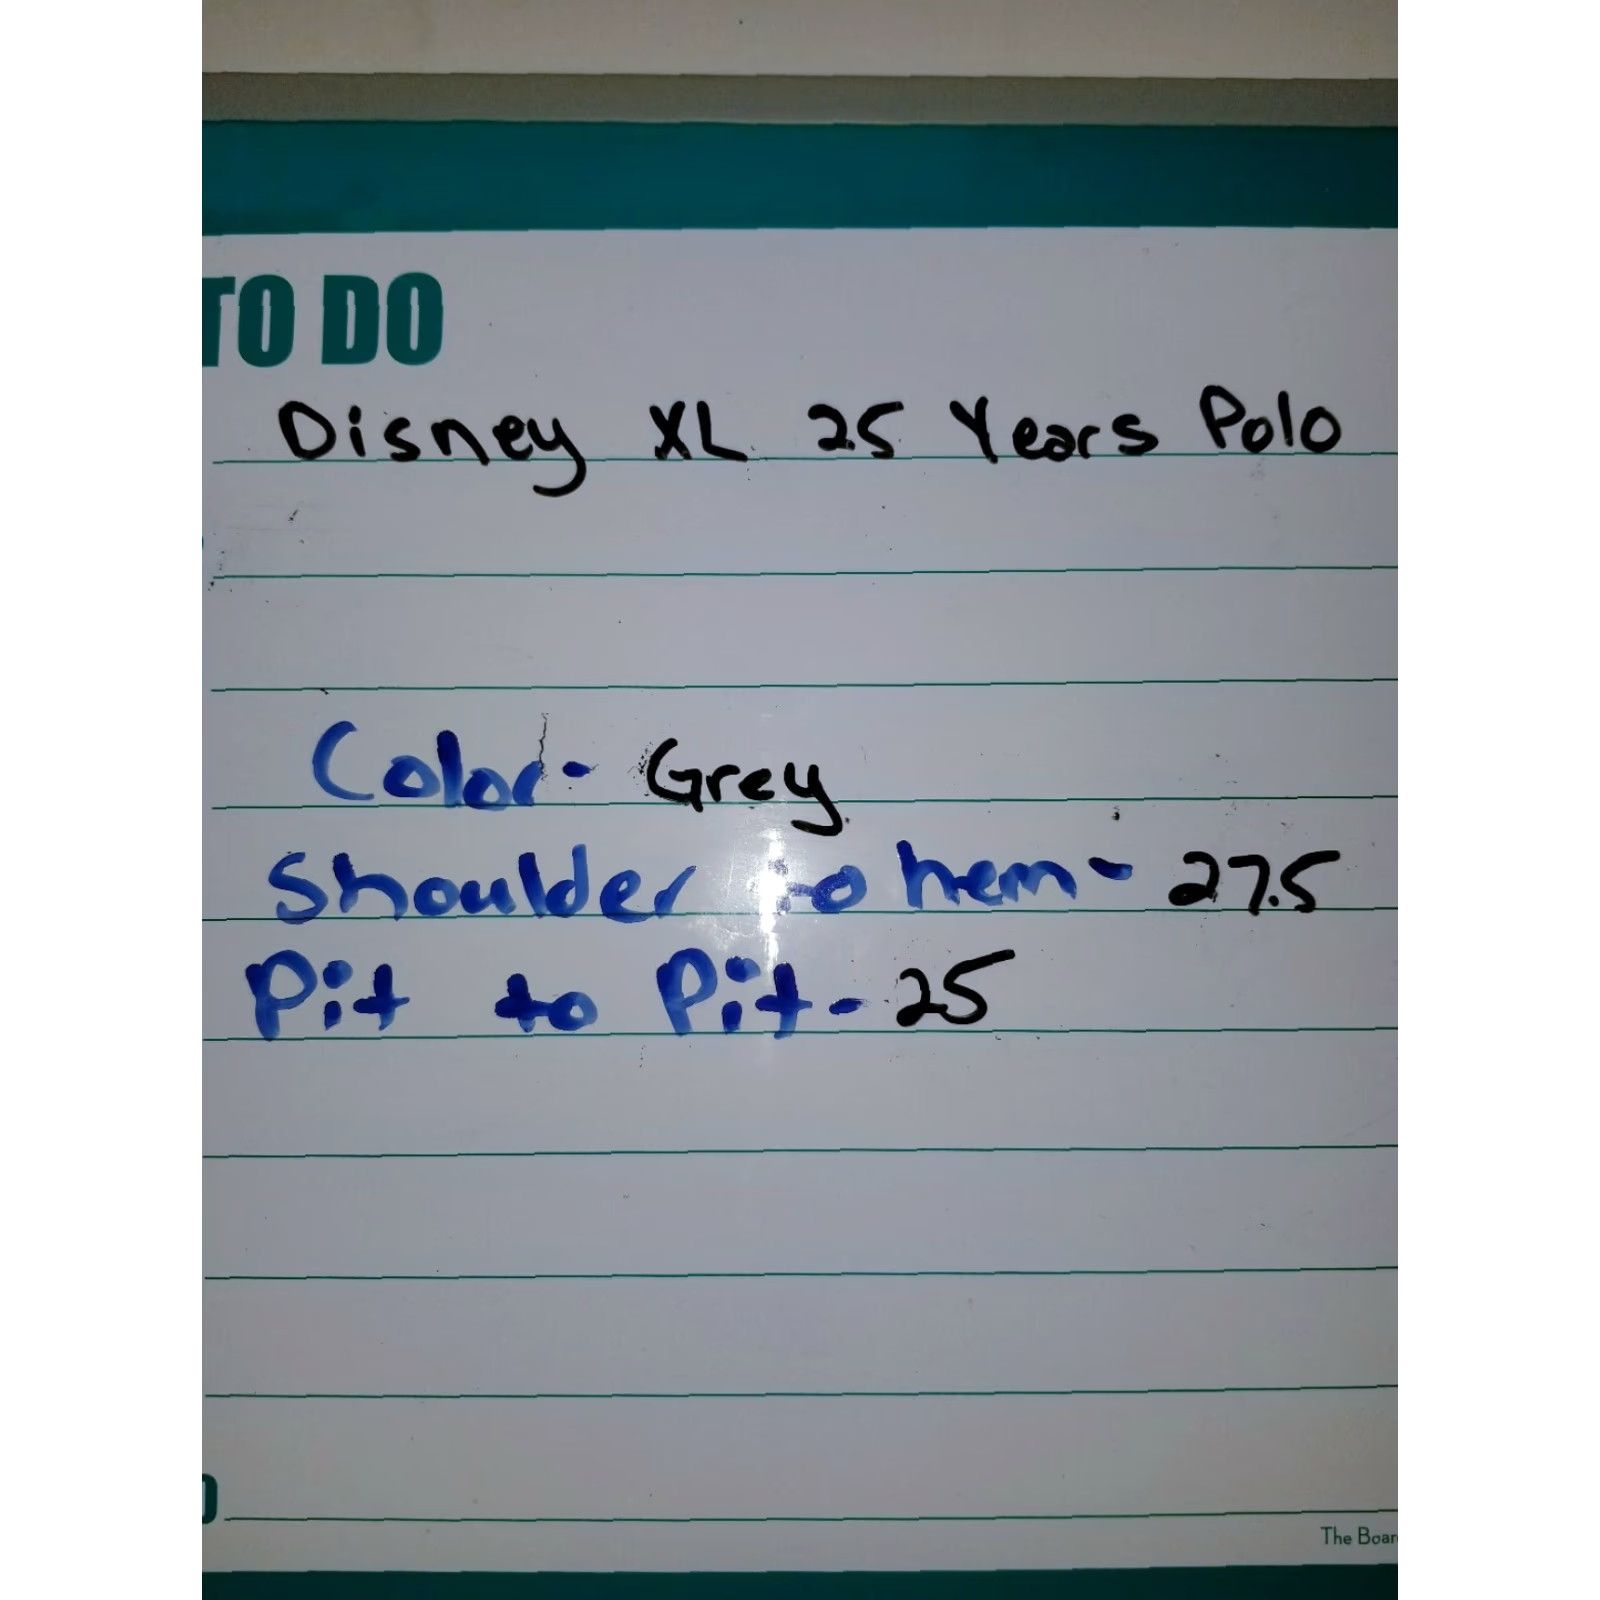 TO DO
Disney XL 25 Years Polo
Color- Grey
Shoulder to hem- 27.5
Pit to Pit- 25
The Boar